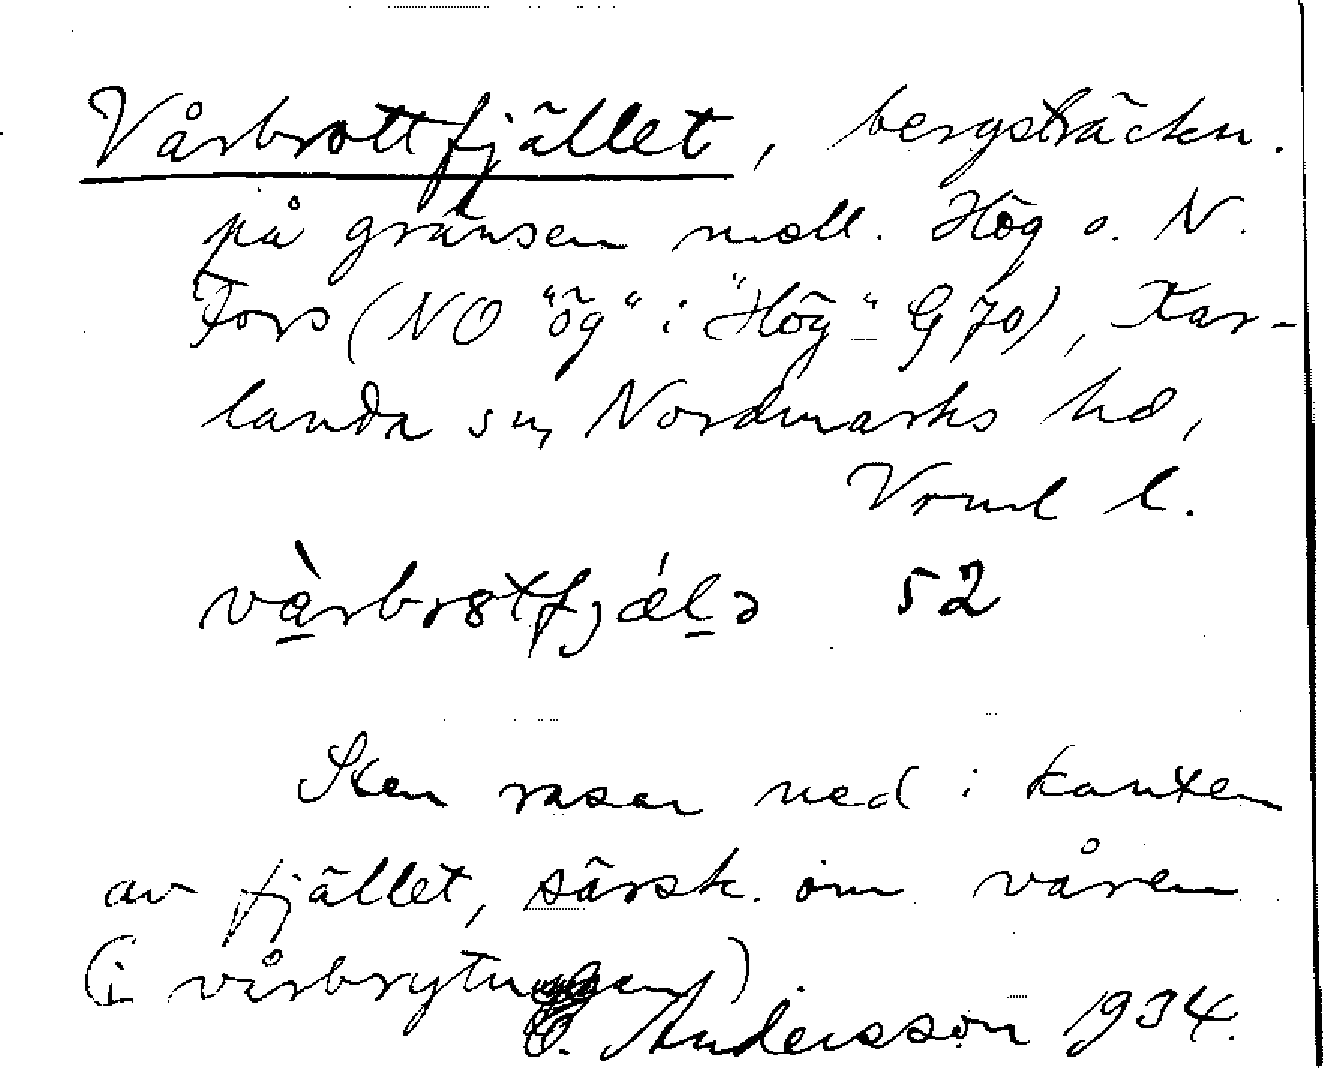 Vårbrottfjället, bergsträckn.
på gränsen mell. Hög o. N.
Fors (NO "ög" i "Hög" G 70), Kar-
landa sn, Nordmarks hd,
Vrml l.
52
Sten rasar ned i kanten
av fjället, särsk. om våren
(i vårbrytningen)
Andersson 1934.